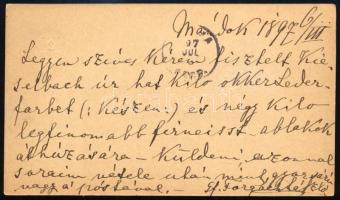 Mádok 1897 6/VII
97
JUL
Legyen szíves kérem tisztelt Kie-
selbach úr hat kiló okker Leder-
farbet (: készen :) és négy kiló
legfinomabb firneisst ablakok
áthúzására – küldeni azonnal
soraim vétele után mint
vagy a póstával.